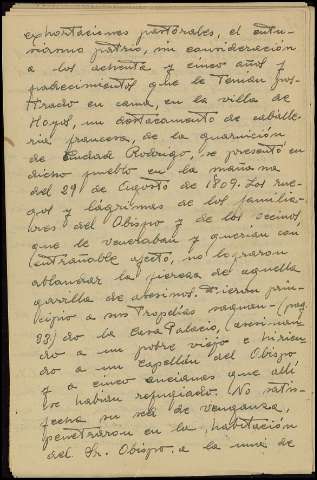 exhortaciones pastorales, el entu-
siasmo patrio, sin consideración
a los ochenta y cinco años y
padecimientos que le tenían pos-
trado en cama, en la villa de
Hoyos, un destacamento de caballe-
ria francesa, de la guarnición
de Ciudad Rodrigo, se presentó en
dicho pueblo en la mañana
del 29 de Agosto de 1809. Los rue-
gos y lágrimas de los familia-
res del Obispo y de los vecinos,
que le veneraban y querían con
entrañable afecto, no lograron
ablandar la fiereza de aquella
gavilla de asesinos. Dieron prin-
cipio a sus tropelías saquean-(pag
83) do la Casa Palacio, asesinan-
do a un pobre viejo e hirien-
do a un capellán del Obispo
y a cinco ancianos que allí
se habían refugiado. No satis-
fecha su sed de venganza,
penetraron en la habitación
del Sr. Obispo, a la una de